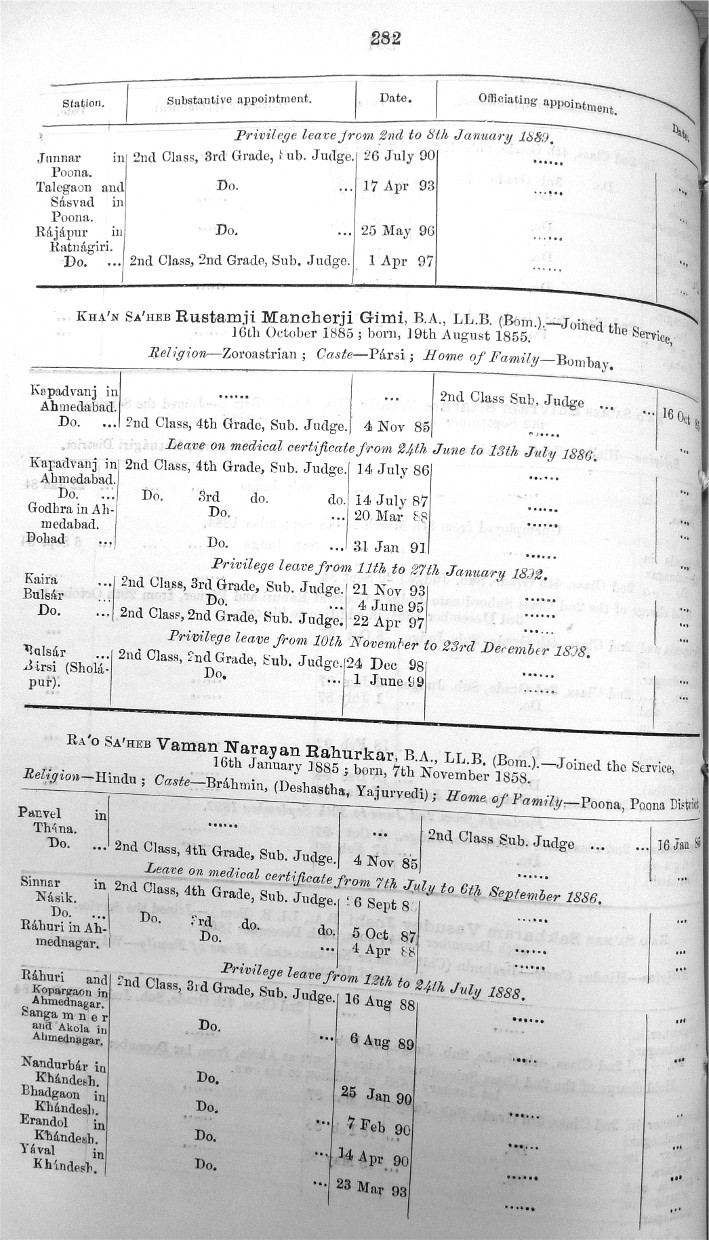 282
Station. Substantive appointment. Date. Officiating appointment. Date.
Privilege leave from 2nd to 8th January 1889.
Junnar in 2nd Class, 3rd Grade, Sub. Judge. 26 July 90 ......
Poona.
Talegaon and Do. ... 17 Apr 93 ...... ...
Sásvad in
Poona.
Rájápur in Do. ... 25 May 96 ...... ...
Ratnágiri.
Do. ... 2nd Class, 2nd Grade, Sub. Judge. 1 Apr 97 ...... ...
KHA'N SA'HEB Rustamji Mancherji Gimi, B.A., LL.B. (Bom.).—Joined the Service,
16th October 1885; born, 19th August 1855.
Religion—Zoroastrian; Caste—Pársi; Home of Family—Bombay.
Kapadvanj in ...... ... 2nd Class Sub. Judge ... ... 16 Oct
Ahmedabad.
Do. ... 2nd Class, 4th Grade, Sub. Judge. 4 Nov 85 ...... ...
Leave on medical certificate from 24th June to 13th July 1886.
Kapadvanj in 2nd Class, 4th Grade, Sub. Judge. 14 July 86 ...... ...
Ahmedabad.
Do. ... Do. 3rd do. do. 14 July 87 ...... ...
Godhra in Ah- Do. ... 20 Mar 88 ...... ...
medabad.
Dohad ... Do. ... 31 Jan 91 ...... ...
Privilege leave from 11th to 27th January 1892.
Kaira ... 2nd Class, 3rd Grade, Sub. Judge. 21 Nov 93 ...... ...
Bulsár ... Do. ... 4 June 95 ...... ...
Do. ... 2nd Class, 2nd Grade, Sub. Judge. 22 Apr 97 ...... ...
Privilege leave from 10th November to 23rd December 1898.
Bulsár ... 2nd Class, 2nd Grade, Sub. Judge. 24 Dec 98 ...... ...
Birsi (Sholá- Do. ... 1 June 99 ...... ...
pur).
RA'O SA'HEB Vaman Narayan Rahurkar, B.A., LL.B. (Bom.).—Joined the Service,
16th January 1885; born, 7th November 1858.
Religion—Hindu; Caste—Bráhmin, (Deshastha, Yajurvedi); Home of Family—Poona, Poona District
Panvel in ...... ... 2nd Class Sub. Judge ... ... 16 Jan
Thána.
Do. ... 2nd Class, 4th Grade, Sub. Judge. 4 Nov 85 ...... ...
Leave on medical certificate from 7th July to 6th September 1886.
Sinnar in 2nd Class, 4th Grade, Sub. Judge. Sept
Násik.
Do. ... Do. 3rd do. do. 5 Oct 87 ...... ...
Ráhuri in Ah- Do. ... 4 Apr 88 ...... ...
mednagar.
Privilege leave from 12th to 24th July 1888.
Ráhuri and 2nd Class, 3rd Grade, Sub. Judge. 16 Aug 88 ...... ...
Kopargaon in
Ahmednagar.
Sangamner Do. ... 6 Aug 89 ...... ...
and Akola in
Ahmednagar.
Nandurbár in Do. 25 Jan 90 ...... ...
Khándesh.
Bhadgaon in Do. ... 7 Feb 90 ...... ...
Khándesh.
Erandol in Do. ... 14 Apr 90 ...... ...
Khándesh.
Yával in Do. ... 23 Mar 93 ...... ...
Khándesh.